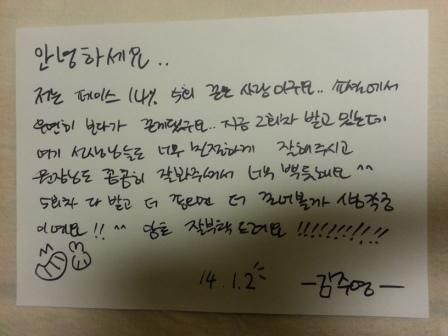 안녕하세요..
저는 페이스 14% 5회 끊은 사람이구요.. 피부에서
우연히 보다가 끊게됐구요.. 지금 2회차 받고 있는데
여기 선생님들도 너무 친절하게 잘해주시고
원장님도 꼼꼼히 잘봐주셔서 너무 뿌듯해요 ^^
5회차 다 받고 더 필요하면 더 끊어볼까 생각중
이예요!! ^^ 암튼 잘부탁 드려요!!!!!!!!!
14.1.2
-김주영-